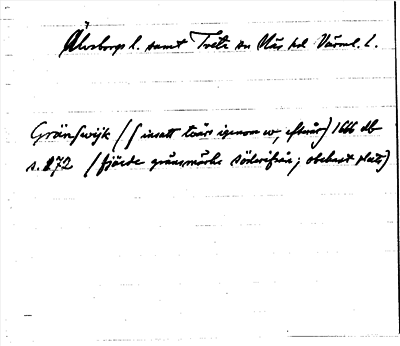 Älvsborgs l. samt Treti sn Näs hd Värml. l.
Gränsewijk (f insatt tvärs igenom w, efteråt) 1666 db
s. 272 (fjärde gränsmärke söderifrån; obebott plats)